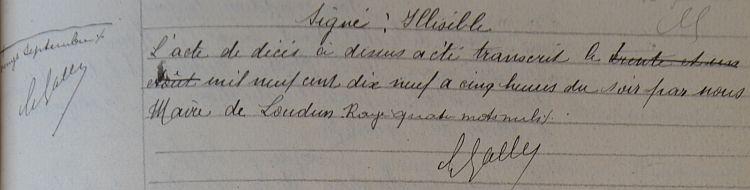 Signé : Illisible
L'acte de décès ci dessus a été transcrit le trente et un
août mil neuf cent dix neuf a cinq heures du soir par nous
Maire de Loudun Rayé quatre mots nuls
Septembre